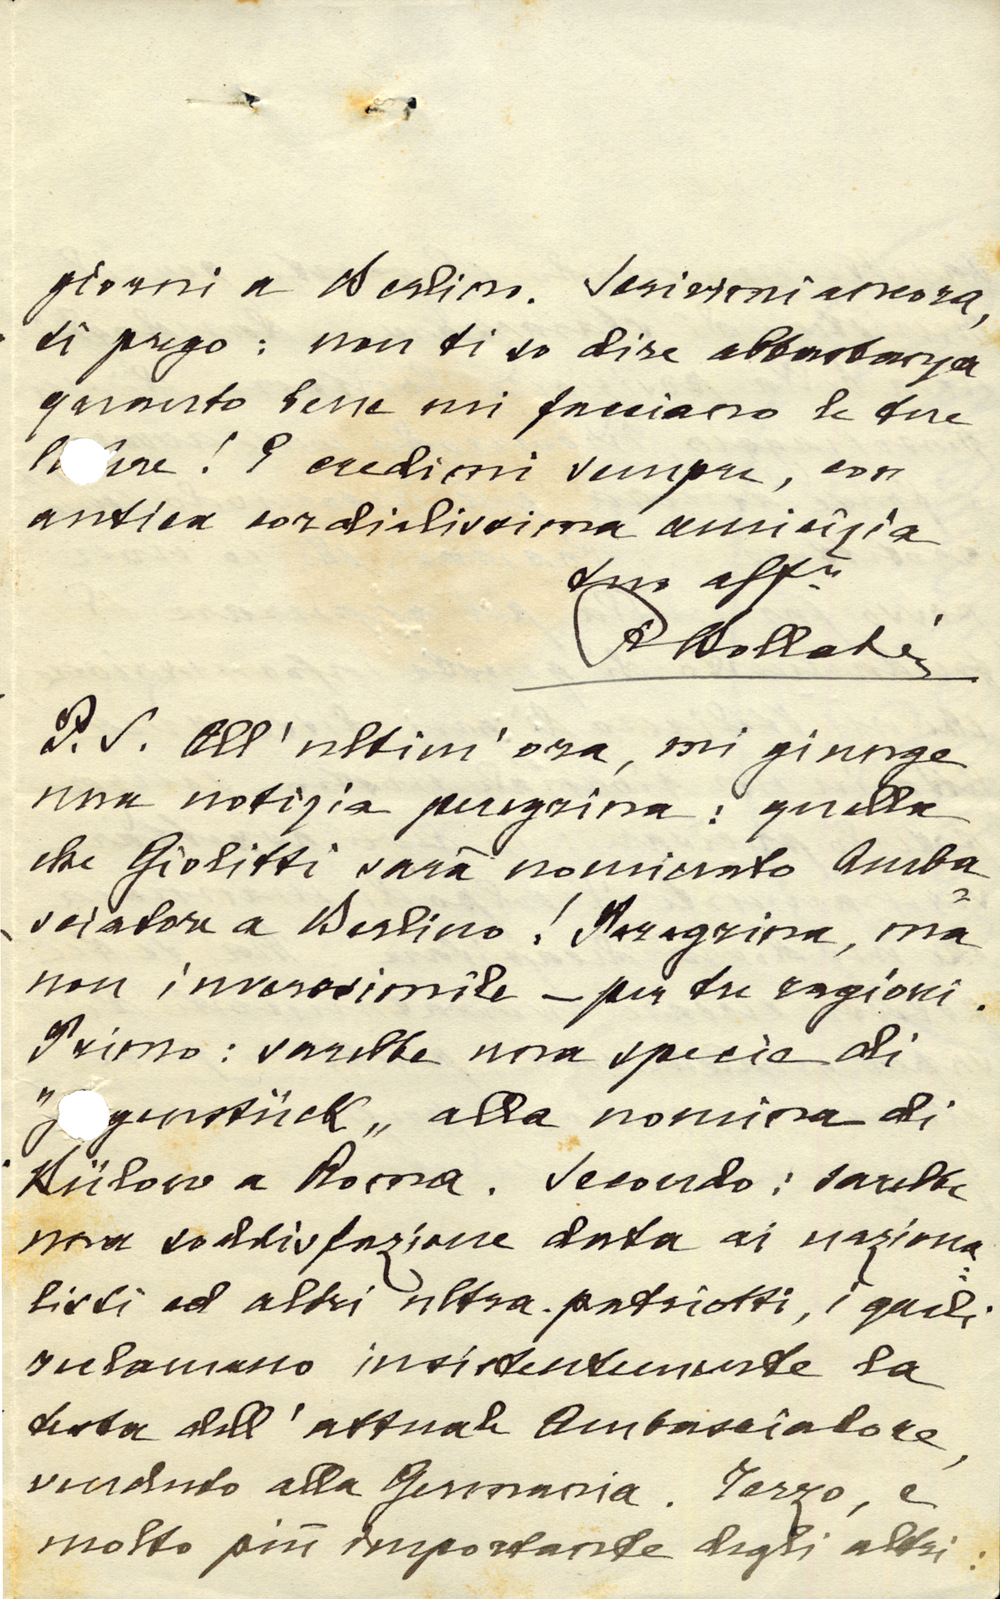 giorni a Berlino. Scrivimi ancora,
ti prego: non ti so dire abbastanza
quanto bene mi facciano le tue
lettere! E credimi sempre, con
antica cordialissima amicizia
tuo affmo
R Bollati
P. S. All'ultim'ora, mi giunge
una notizia peregrina: quella
che Giolitti sarà nominato Amba
sciatore a Berlino! Peregrina, ma
non inverosimile – per tre ragioni.
Primo: sarebbe una specie di
"Gegenstück„ alla nomina di
Bülow a Roma. Secondo: sarebbe
una soddisfazione data ai naziona
listi ed altri ultra-patriotti, i quali
reclamano insistentemente la
testa dell'attuale Ambasciatore,
venduto alla Germania. Terzo, e
molto più importante degli altri: